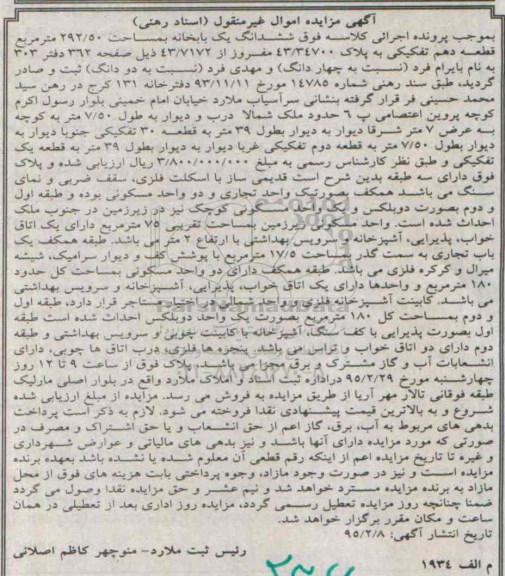 آگهی مزایده اموال غیرمنقول (اسناد رهنی)
بموجب پرونده اجرائی کلاسه فوق ششدانگ یک بابخانه بمساحت ۲۹۲/۵۰ مترمربع
قطعه دهم تفکیکی به پلاک ۴۳/۳۴۷۰۰ مفروز از ۴۳/۷۱۷۲ ذیل صفحه ۳۶۲ دفتر ۳۰۳
به نام بایرام فرد (نسبت به چهار دانگ) و مهدی فرد (نسبت به دو دانگ) ثبت و صادر
گردید، طبق سند رهنی شماره ۱۴۷۸۵ مورخ ۹۳/۱۱/۱۱ دفترخانه ۱۳۱ کرج در رهن سید
محمد حسینی فر قرار گرفته بنشانی سرآسیاب ملارد خیابان امام خمینی بلوار رسول اکرم
کوچه پروین اعتصامی پ ۶ حدود ملک شمالا درب و دیوار به طول ۷/۵۰ متر به کوچه
به عرض ۷ متر شرقا دیوار به دیوار بطول ۳۹ متر به قطعه ۳۰ تفکیکی جنوبا دیوار به
دیوار بطول ۷/۵۰ متر به قطعه دوم تفکیکی غربا دیوار به دیوار بطول ۳۹ متر به قطعه یک
تفکیکی و طبق نظر کارشناس رسمی به مبلغ ۳/۸۰۰/۰۰۰/۰۰۰ ریال ارزیابی شده و پلاک
فوق دارای سه طبقه بدین شرح است قدیمی ساز با اسکلت فلزی، سقف ضربی و نمای
سنگ می باشد همکف بصورتیک واحد تجاری و دو واحد مسکونی بوده و طبقه اول
و دوم بصورت دوبلکس و یک واحد مسکونی کوچک نیز در زیرزمین در جنوب ملک
احداث شده است. واحد مسکونی زیرزمین بمساحت تقریبی ۷۵ مترمربع دارای یک اتاق
خواب، پذیرایی، آشپزخانه و سرویس بهداشتی با ارتفاع ۲ متر می باشد. طبقه همکف یک
باب تجاری به سمت گذر بمساحت ۱۷/۵ مترمربع با پوشش کف و دیوار سرامیک، شیشه
میرال و کرکره فلزی می باشد. طبقه همکف دارای دو واحد مسکونی بمساحت کل حدود
۱۸۰ مترمربع و واحدها دارای یک اتاق خواب، پذیرایی، آشپزخانه و سرویس بهداشتی
می باشد. کابینت آشپزخانه فلزی و واحد شمالی در اختیار مستاجر قرار دارد، طبقه اول
و دوم بمساحت کل ۱۸۰ مترمربع بصورت یک واحد دوبلکس احداث شده است طبقه
اول بصورت پذیرایی با کف سنگ، آشپزخانه با کابینت چوبی و سرویس بهداشتی و طبقه
دوم دارای دو اتاق خواب و تراس می باشد. پنجره ها فلزی، درب اتاق ها چوبی، دارای
انشعابات آب و گاز مشترک و برق مجزا می باشد، پلاک فوق از ساعت ۹ تا ۱۲ روز
چهارشنبه مورخ ۹۵/۲/۲۹ دراداره ثبت اسناد و املاک ملارد واقع در بلوار اصلی مارلیک
طبقه فوقانی تالار مهر آریا از طریق مزایده به فروش می رسد. مزایده از مبلغ ارزیابی شده
شروع و به بالاترین قیمت پیشنهادی نقدا فروخته می شود. لازم به ذکر است پرداخت
بدهی های مربوط به آب، برق، گاز اعم از حق انشعاب و یا حق اشتراک و مصرف در
صورتی که مورد مزایده دارای آنها باشد و نیز بدهی های مالیاتی و عوارض شهرداری
و غیره تا تاریخ مزایده اعم از اینکه رقم قطعی آن معلوم شده یا نشده باشد بعهده برنده
مزایده است و نیز در صورت وجود مازاد، وجوه پرداختی بابت هزینه های فوق از محل
مازاد به برنده مزایده مسترد خواهد شد و نیم عشر و حق مزایده نقدا وصول می گردد
ضمنا چنانچه روز مزایده تعطیل رسمی گردد، مزایده روز اداری بعد از تعطیلی در همان
ساعت و مکان مقرر برگزار خواهد شد.
تاریخ انتشار آگهی: ۹۵/۲/۸
رئیس ثبت ملارد- منوچهر کاظم اصلانی
م الف ۱۹۳۴